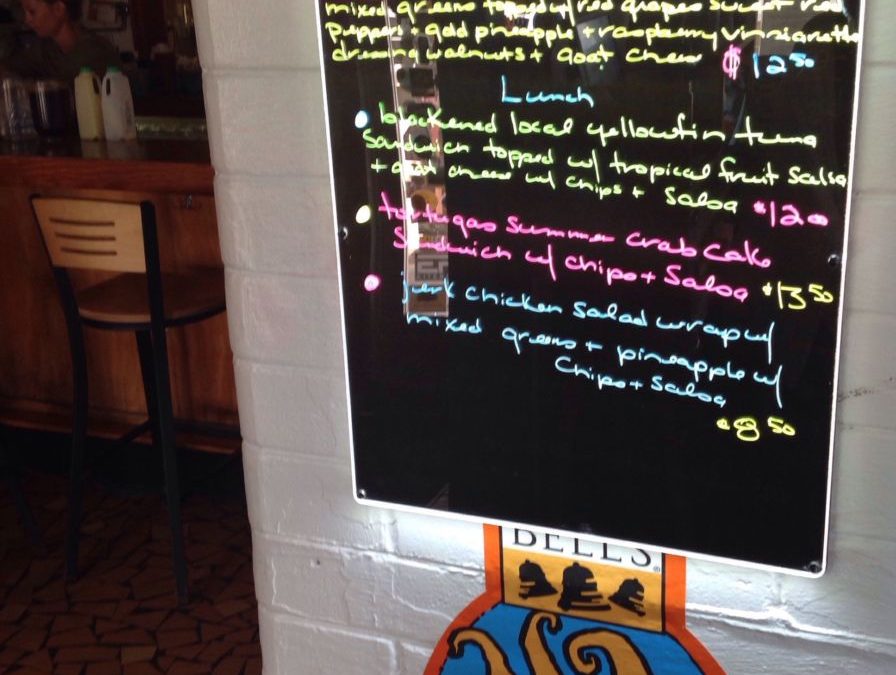 mixed greens topped w/ red grapes sweet red
peppers + gold pineapple + raspberry vinniarette
dressing walnuts + goat chese $ 12 50
Lunch
• blackened local yellowfin tuna
sandwich topped w/ tropical fruit salsa
+ goat chese w/ chips + salsa $12 00
• tortugas summer crab cake
sandwich w/ chips + salsa $13 50
• jerk chicken salad wrap w/
mixed greens + pineapple w/
chips + salsa
50
BELL'S